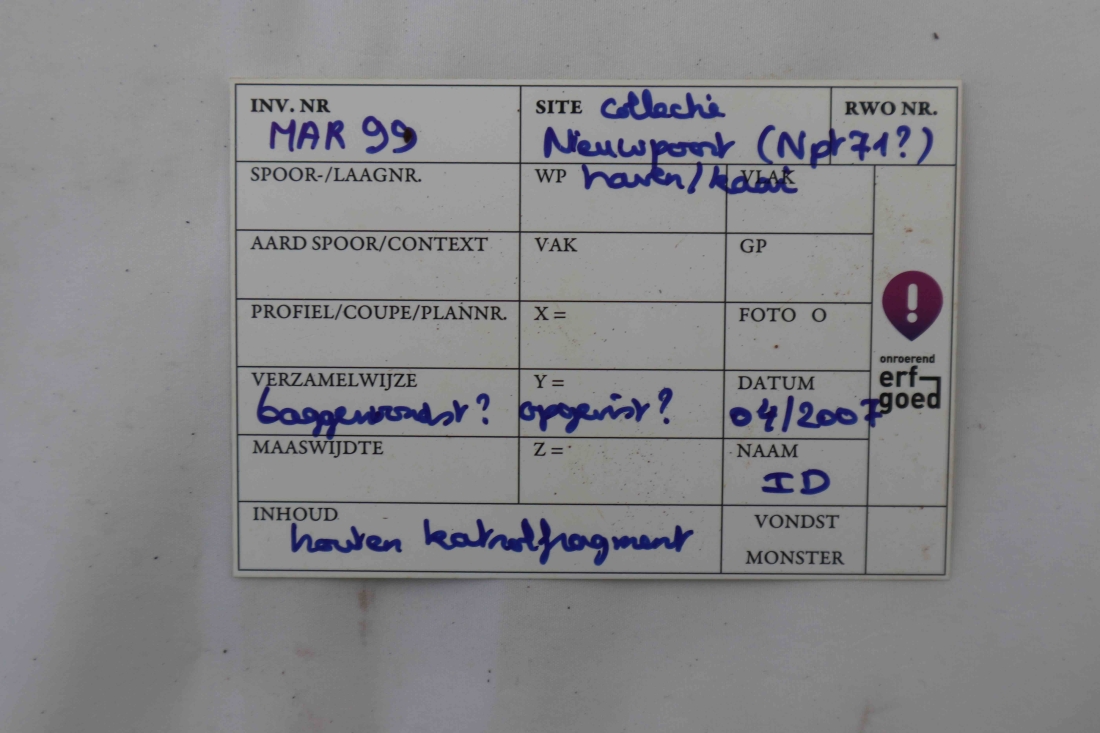 INV. NR SITE collectie RWO NR.
MAR 99 Nieuwpoort (Npt 71?)
SPOOR-/LAAGNR. WP haven/kaai VLAK
AARD SPOOR/CONTEXT VAK GP
PROFIEL/COUPE/PLANNR. X = FOTO O
VERZAMELWIJZE Y = DATUM
baggervondst? opgevist? 04/2007
MAASWIJDTE Z = NAAM
ID
INHOUD VONDST
houten katrolfragment
MONSTER
onroerend
erf
goed